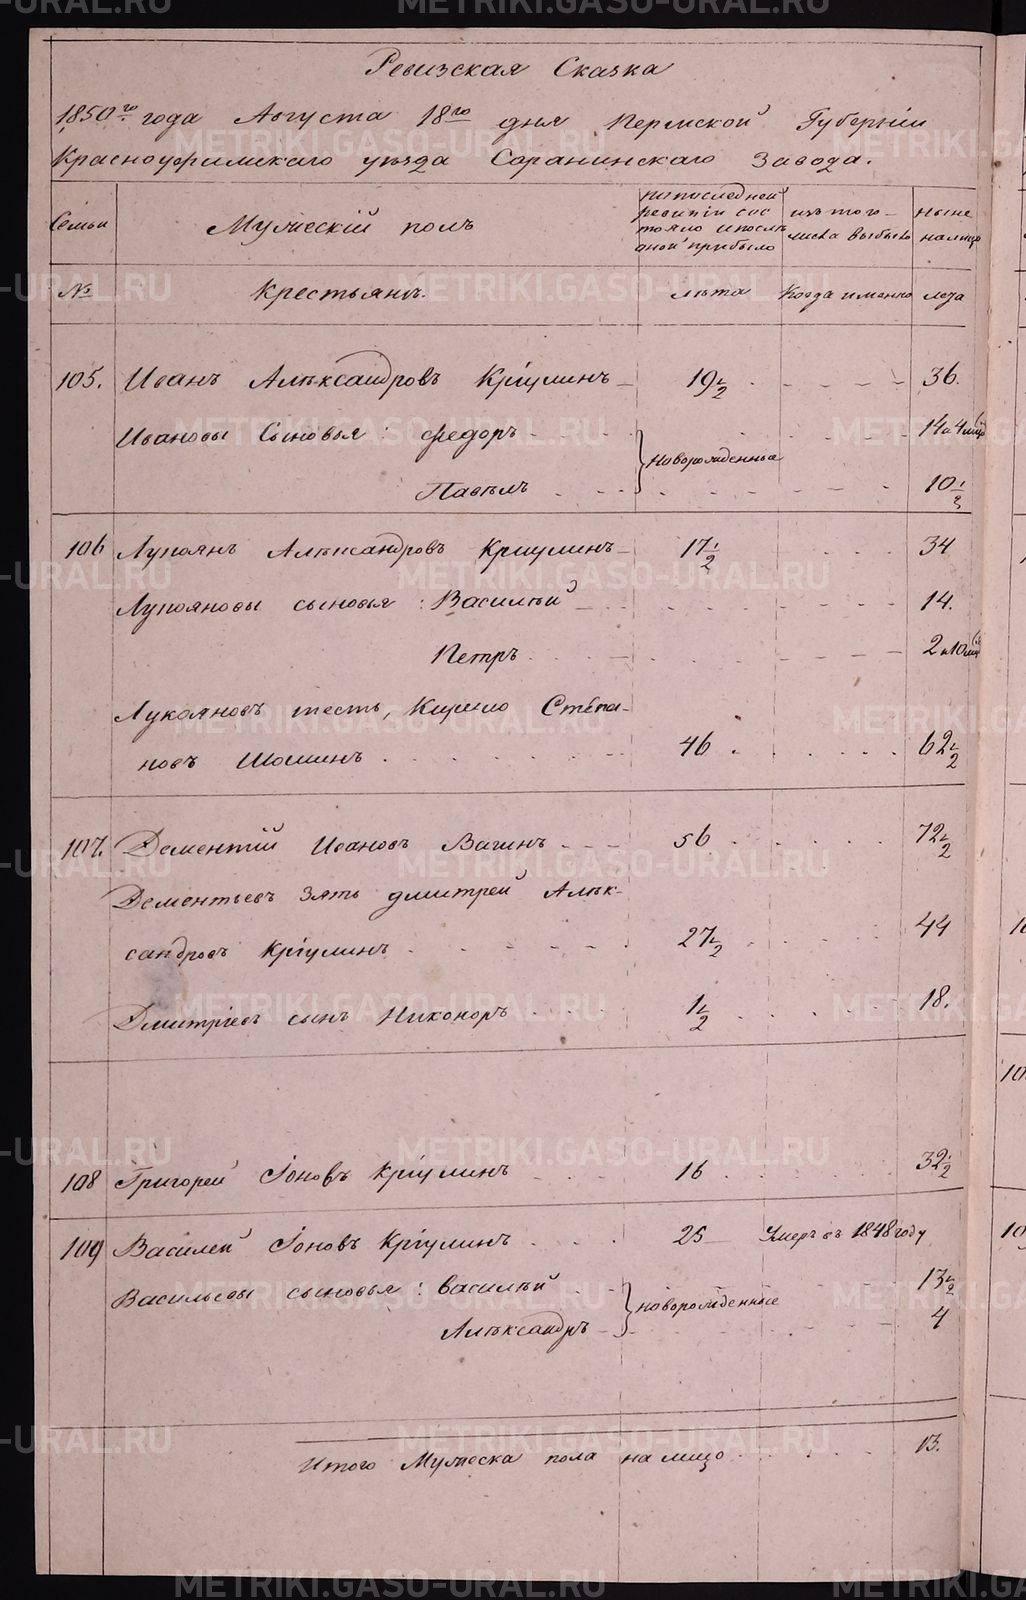 Ревизская Сказка
1850го года Августа 18го дня Пермской Губернiи
Красноуфимскаго уѣзда Саранинскаго Завода.
Семьи
Мужескiй полъ
попоследней ревизiи состояло ипослѣ оной прибыло
изъ того числа выбыло
ныне налицо
№
Крестьянъ.
лѣта
Когда именно
лета
105. Иванъ Алѣксандровъ Крiулинъ 19½ 36.
Ивановы Сыновья: Федоръ 14 и 4 мѣс
Новорожденные
Павѣлъ 10½
106 Лукоянъ Алѣксандровъ Криулинъ 17½ 34
Лукояновы сыновья: Василѣй 14.
Петръ 2 и 10 мѣс
Лукояновъ тесть, Кирило Степа-
новъ Шошинъ 46 62½
107. Дементiй Ивановъ Вагинъ 56 72½
Дементьевъ Зять Дмитрей Алѣк-
сандровъ Крiулинъ 27½ 44
Дмитрiевъ сынъ Никоноръ 1½ 18.
108 Григорей Iоновъ Крiулинъ 16 32½
109 Василей Iоновъ Крiулинъ 25 Умеръ въ 1848 году
Васильевы сыновья: Василѣй 13½
новорожденные
Алѣксандръ 4
Итого Мужеска пола на лицо 13.
METRIKI.GASO-URAL.RU